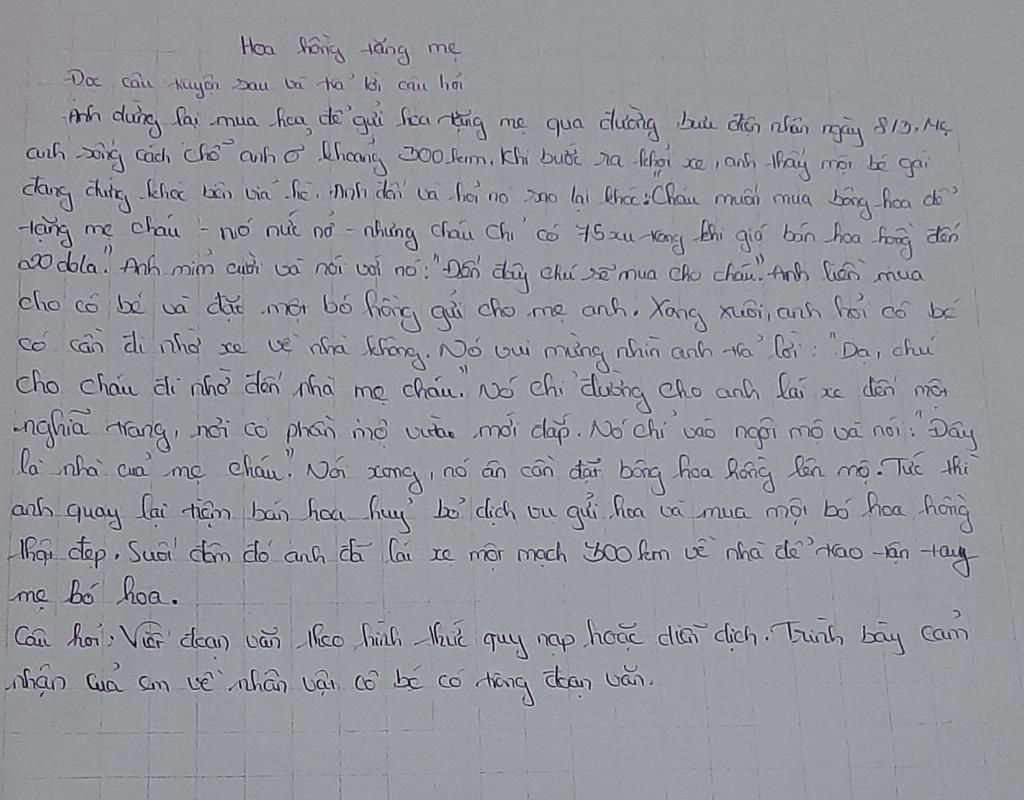 Hoa hồng tặng mẹ
Đọc câu truyện sau và trả lời câu hỏi
Anh dừng lại mua hoa để gửi hoa tặng mẹ qua đường bưu điện nhân ngày 8/3. Mẹ
anh sống cách chỗ anh ở khoảng 300km. Khi bước ra khỏi xe, anh thấy một bé gái
đang đứng khóc bên vỉa hè. Anh đến và hỏi nó sao lại khóc: "Cháu muốn mua bông hoa để
tặng mẹ cháu - nó nức nở - nhưng cháu chỉ có 75 xu trong khi giá bán hoa hồng đến
20 đôla." Anh mỉm cười và nói với nó: "Đến đây chú sẽ mua cho cháu". Anh liền mua
cho cô bé và đặt một bó hồng gửi cho mẹ anh. Xong xuôi, anh hỏi cô bé
có cần đi nhờ xe về nhà không. Nó vui mừng nhìn anh trả lời: "Dạ, chú
cho cháu đi nhờ đến nhà mẹ cháu." Nó chỉ đường cho anh lái xe đến một
nghĩa trang, nơi có phần mộ vừa mới đắp. Nó chỉ vào ngôi mộ và nói: "Đây
là nhà của mẹ cháu". Nói xong, nó ân cần đặt bông hoa hồng lên mộ. Tức thì
anh quay lại tiệm bán hoa huỷ bỏ dịch vụ gửi hoa và mua một bó hoa hồng
thật đẹp. Suốt đêm đó anh đã lái xe một mạch 300km về nhà để trao tận tay
mẹ bó hoa.
Câu hỏi: Viết đoạn văn theo hình thức quy nạp hoặc diễn dịch. Trình bày cảm
nhận của em về nhân vật cô bé có trong đoạn văn.